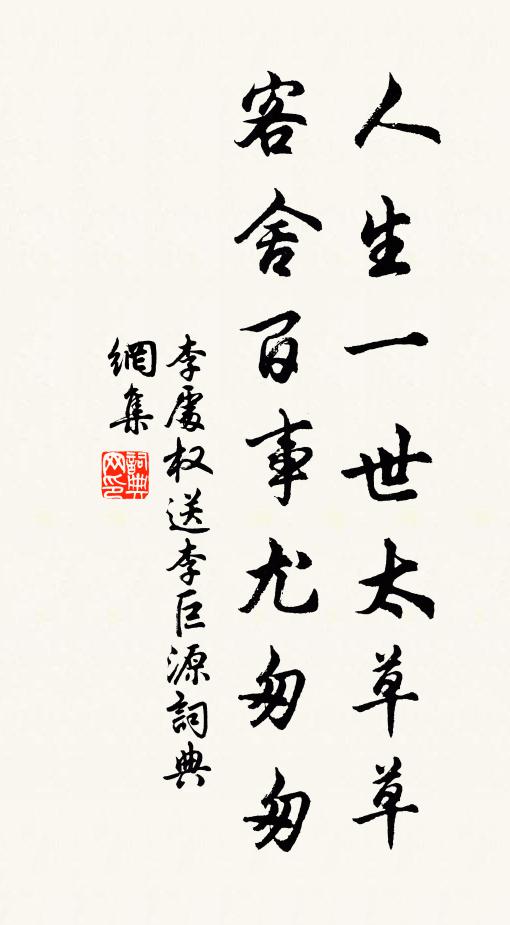 人生一世太草草
客舍百事尤匆匆
李處权送李巨源詞典
網集
詞典
网印